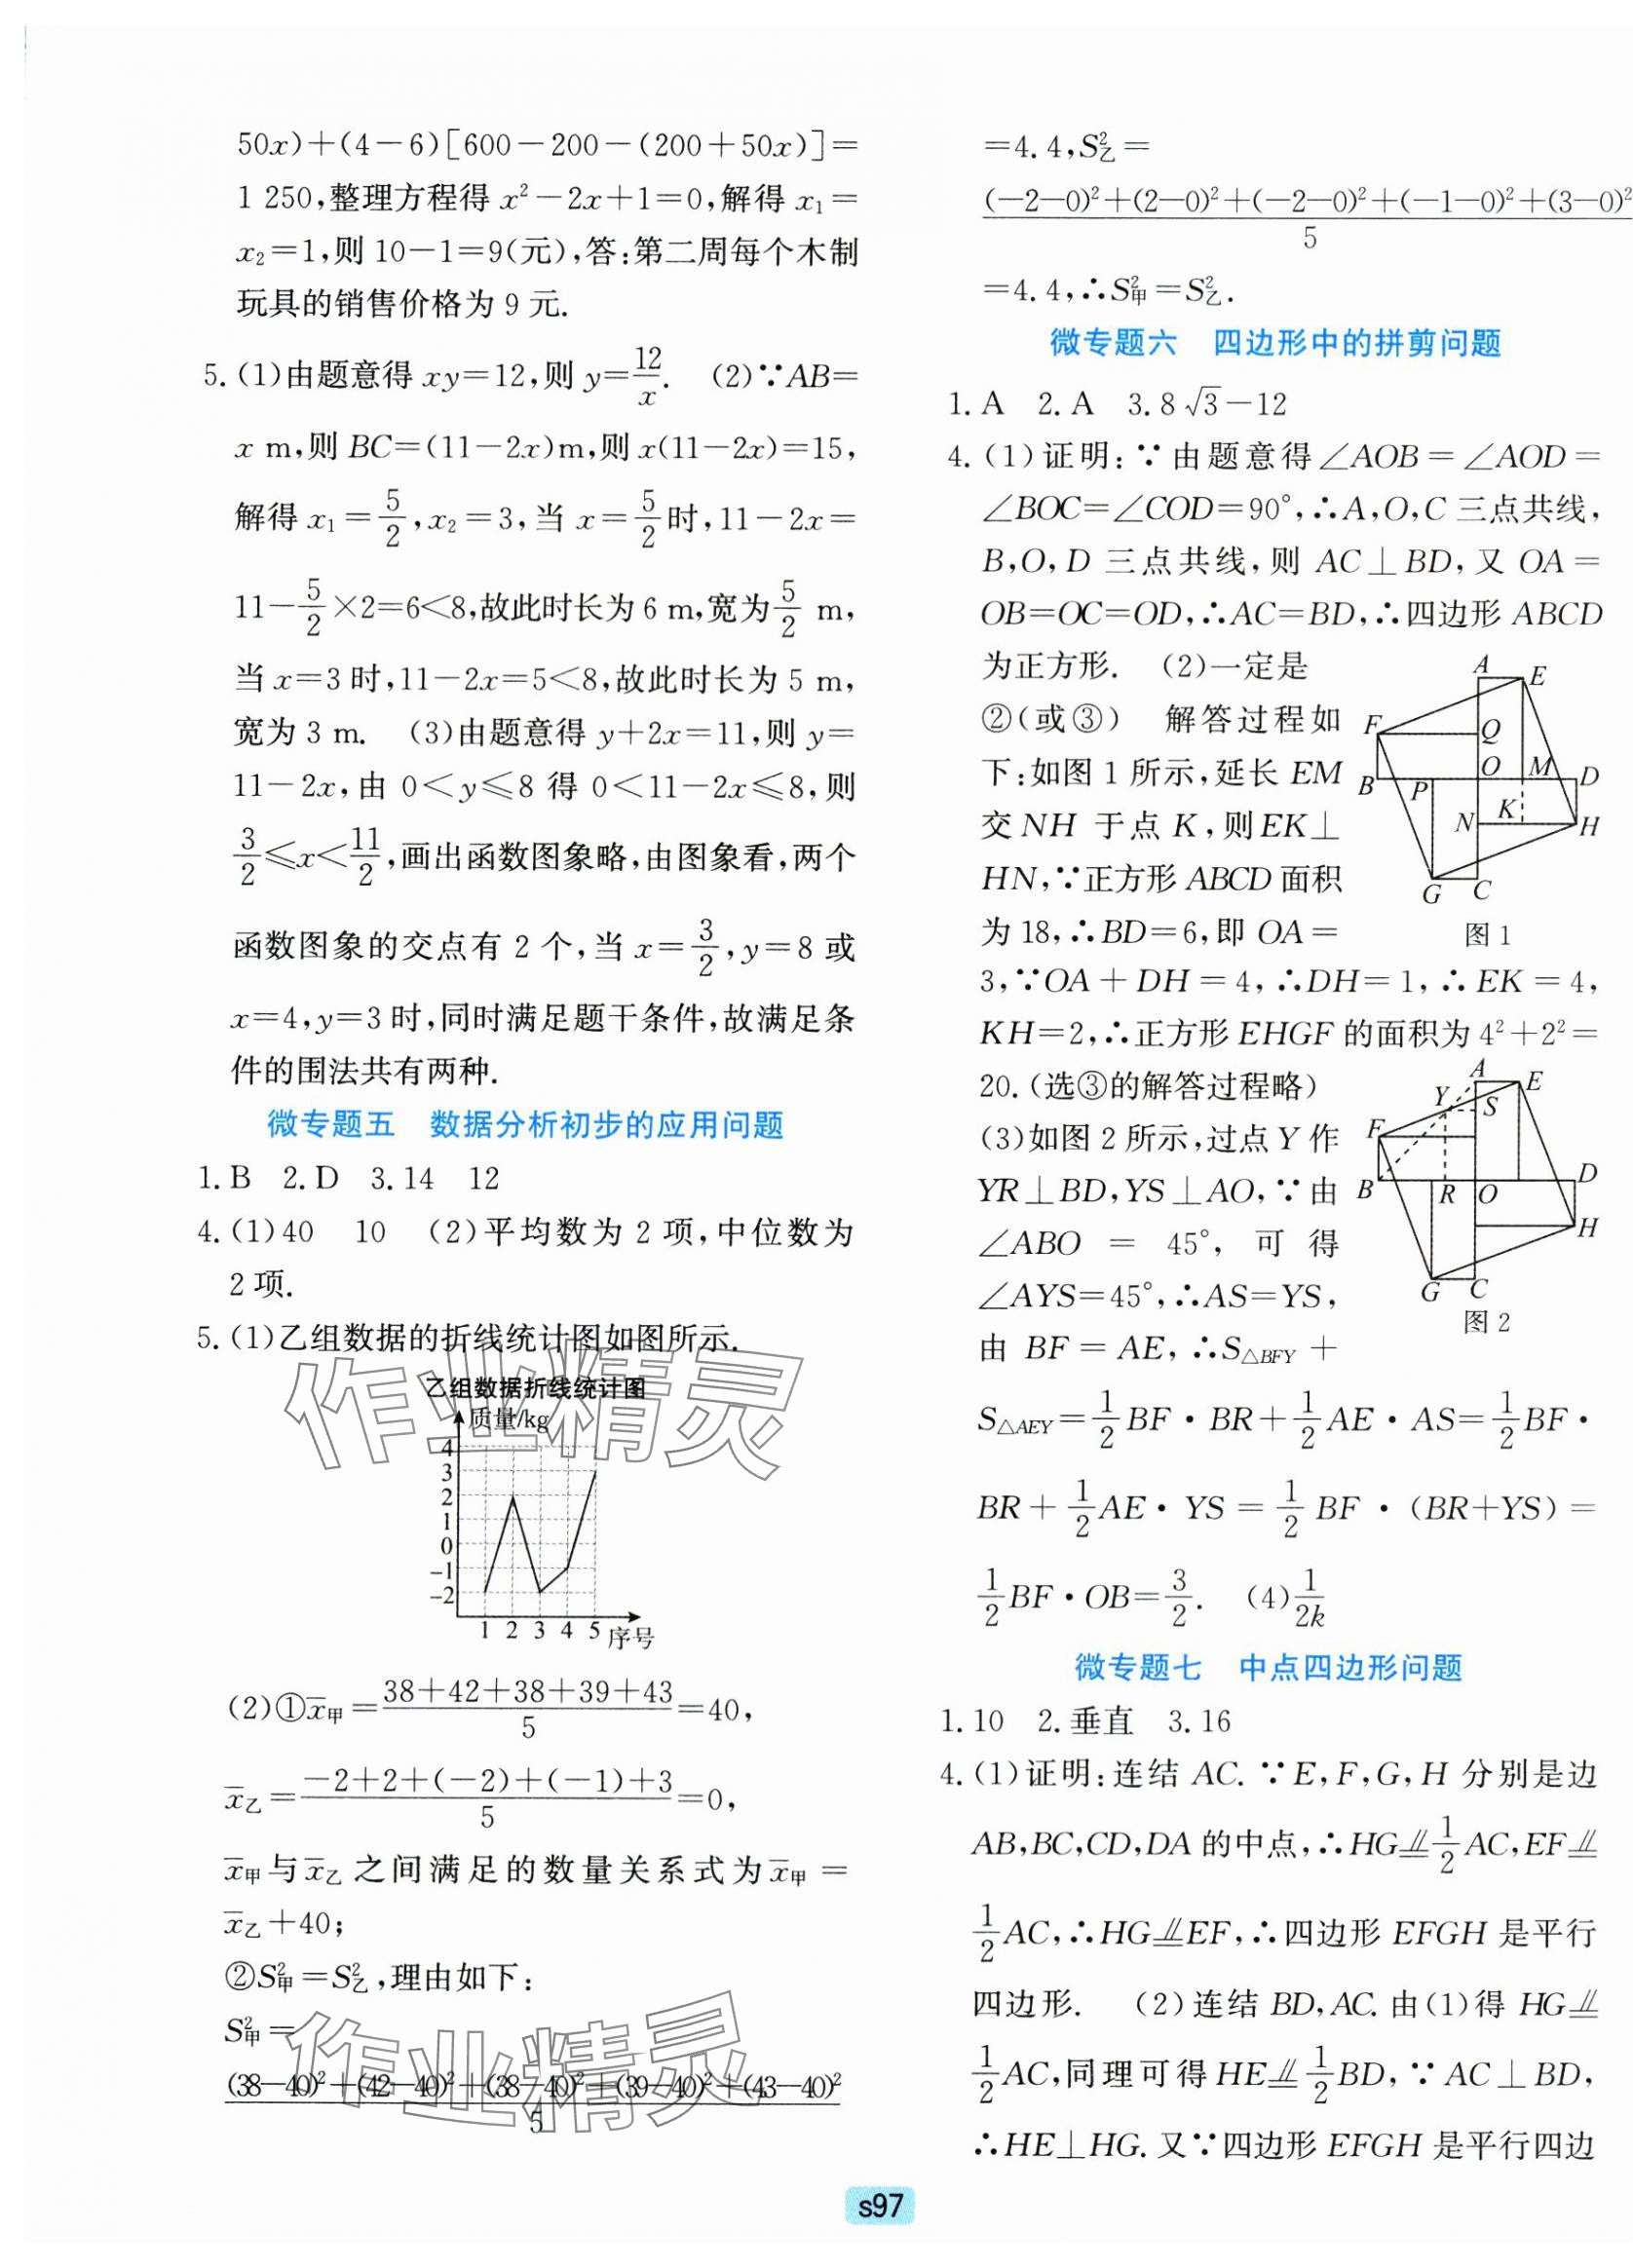 50x)+(4-6)[600-200-(200+50x)]=
1 250,整理方程得 x²-2x+1=0,解得 x₁=
x₂=1,则 10-1=9(元),答:第二周每个木制
玩具的销售价格为 9 元.
5.(1)由题意得 xy=12,则 y=12/x. (2)∵AB=
x m,则 BC=(11-2x)m,则 x(11-2x)=15,
解得 x₁=5/2,x₂=3,当 x=5/2时,11-2x=
11-5/2×2=6<8,故此时长为 6 m,宽为5/2 m,
当 x=3 时,11-2x=5<8,故此时长为 5 m,
宽为 3 m. (3)由题意得 y+2x=11,则 y=
11-2x,由 0<y⩽8 得 0<11-2x⩽8,则
3/2⩽x<11/2,画出函数图象略,由图象看,两个
函数图象的交点有 2 个,当 x=3/2,y=8 或
x=4,y=3 时,同时满足题干条件,故满足条
件的围法共有两种.
微专题五 数据分析初步的应用问题
1.B 2.D 3.14 12
4.(1)40 10 (2)平均数为 2 项,中位数为
2 项.
5.(1)乙组数据的折线统计图如图所示.
乙组数据折线统计图
质量/kg
4
3
2
1
0
-1
-2
1 2 3 4 5 序号
(2)①x̄甲=(38+42+38+39+43)/5=40,
x̄乙=(-2+2+(-2)+(-1)+3)/5=0,
x̄甲与x̄乙之间满足的数量关系式为x̄甲=
x̄乙+40;
②S²甲=S²乙,理由如下:
S²甲=
((38-40)²+(42-40)²+(38-40)²+(39-40)²+(43-40)²)/5
=4.4,S²乙=
((-2-0)²+(2-0)²+(-2-0)²+(-1-0)²+(3-0)²)/5
=4.4,∴S²甲=S²乙.
微专题六 四边形中的拼剪问题
1.A 2.A 3.8√3-12
4.(1)证明:∵由题意得∠AOB=∠AOD=
∠BOC=∠COD=90°,∴A,O,C 三点共线,
B,O,D 三点共线,则 AC⊥BD,又 OA=
OB=OC=OD,∴AC=BD,∴四边形 ABCD
为正方形. (2)一定是
②(或③) 解答过程如
下:如图 1 所示,延长 EM
交 NH 于点 K,则EK⊥
HN,∵正方形 ABCD 面积
为 18,∴BD=6,即 OA=
A E
F Q
B P O M D
N K H
G C
图 1
3,∵OA+DH=4,∴DH=1,∴EK=4,
KH=2,∴正方形 EHGF 的面积为 4²+2²=
20.(选③的解答过程略)
(3)如图 2 所示,过点 Y 作
YR⊥BD,YS⊥AO,∵由
∠ABO=45°,可得
∠AYS=45°,∴AS=YS,
由 BF=AE,∴S△BFY+
A E
Y S
F
B R O D
H
G C
图 2
S△AEY=1/2BF·BR+1/2AE·AS=1/2BF·
BR+1/2AE·YS=1/2BF·(BR+YS)=
1/2BF·OB=3/2. (4)1/2k
微专题七 中点四边形问题
1.10 2.垂直 3.16
4.(1)证明:连结 AC. ∵E,F,G,H 分别是边
AB,BC,CD,DA 的中点,∴HG⫽1/2AC,EF⫽
1/2AC,∴HG⫽EF,∴四边形 EFGH 是平行
四边形. (2)连结 BD,AC. 由(1)得 HG⫽
1/2AC,同理可得 HE⫽1/2BD,∵AC⊥BD,
∴HE⊥HG. 又∵四边形 EFGH 是平行四边
s97
作业精灵
作业精灵